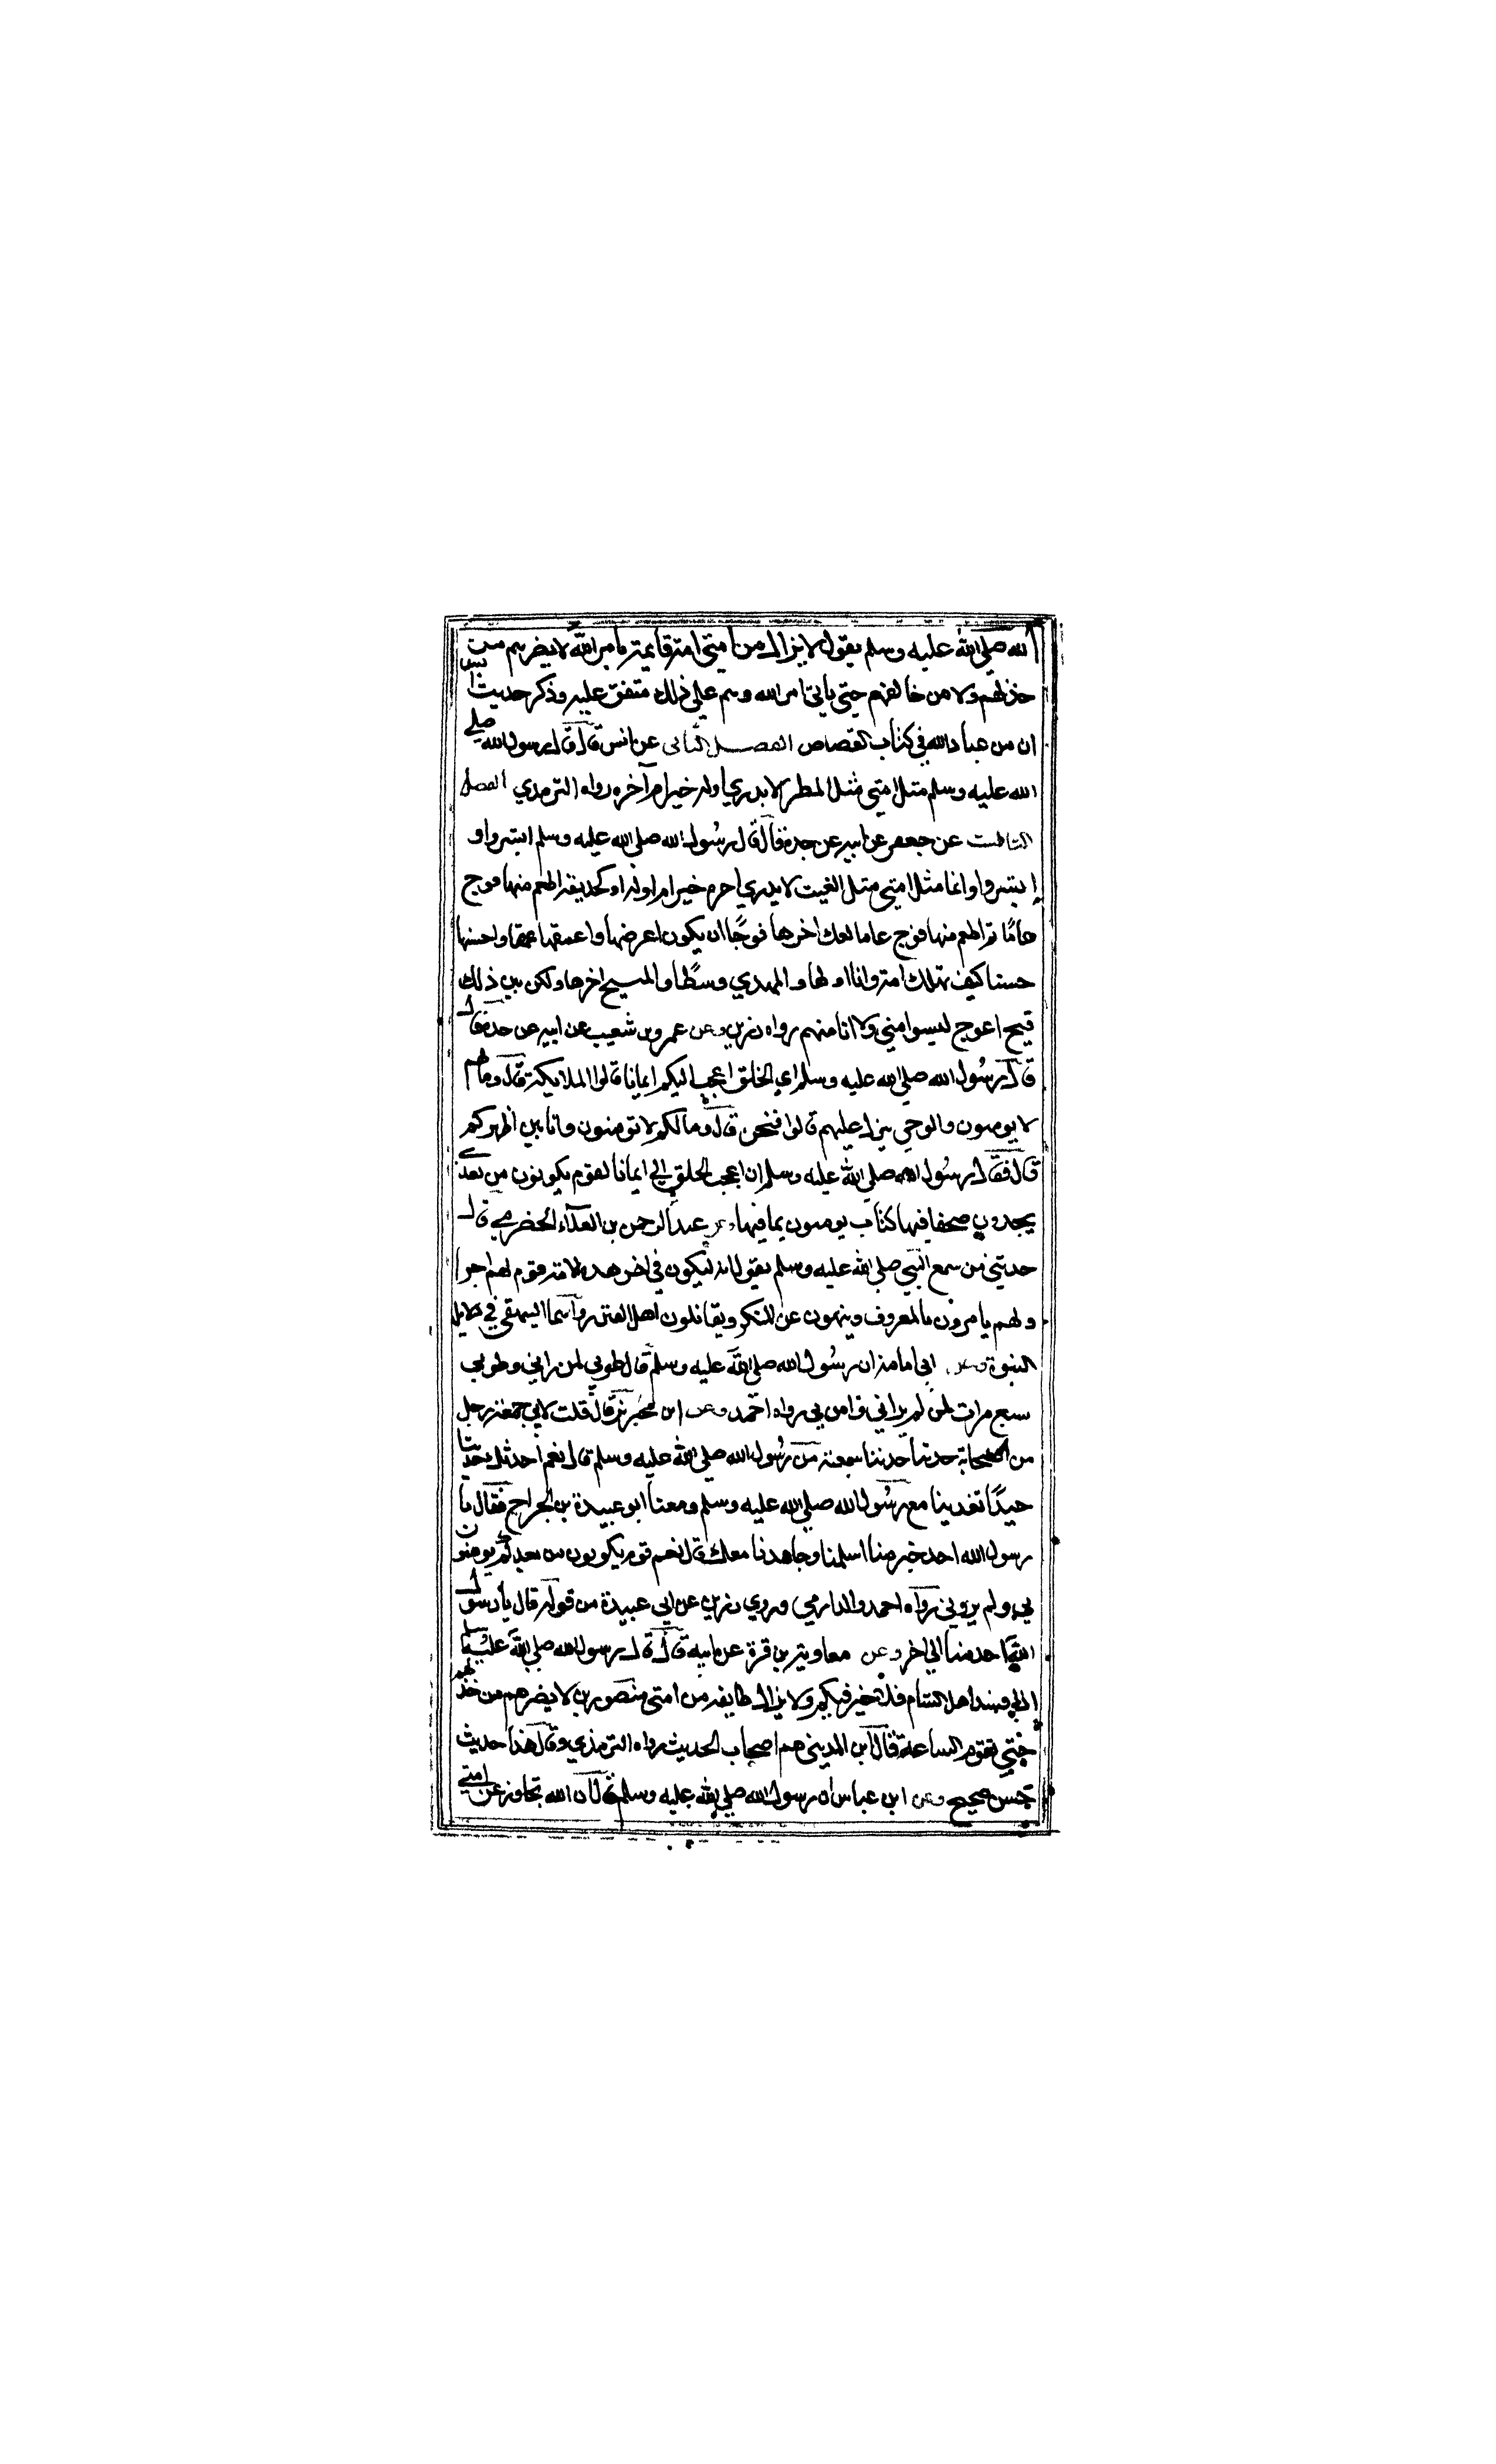 الله صلى الله عليه وسلم يقول لا يزال من امتي امة قايمة بامر الله لا يضرهم من
خذلهم ولا من خالفهم حتى ياتي امر الله وهم على ذلك متفق عليه وذكر حديث انس
ان من عباد الله في كتاب القصاص الفصل الثاني عن انس قال قال رسول الله صلي
الله عليه وسلم مثل امتي مثل المطر لا يدري اوله خير ام آخره رواه الترمذي الفصل
الثالث عن جعفر عن ابيه عن جده قال قال رسول الله صلى الله عليه وسلم ابشروا و
ابشروا وانما مثل امتي مثل الغيث لا يدري اخره خير ام اوله او كحديقة اطعم منها فوج
عامًا ثم اطعم منها فوج عاما لعل اخرها فوجًا ان يكون اعرضها واعمقها عمقا واحسنها
حسنا كيف تهلك امة وانا اولها والمهدي وسطًا والمسيح اخرها ولكن بين ذلك
فيح اعوج ليسوا مني ولا انا منهم رواه رزين وعن عمرو بن شعيب عن ابيه عن جده قال
قال رسول الله صلى الله عليه وسلم اي الخلق اعجب اليكم ايمانا قالوا الملايكة قال وما لهم
لا يومنون والوحي ينزل عليهم قالوا فنحن قال وما لكم لا تومنون وانا بين اظهركم
قال فقال رسول الله صلى الله عليه وسلم ان اعجب الخلق الي ايمانا لقوم يكونون من بعدي
يجدون صحفا فيها كتاب يومنون بما فيها وعن عبد الرحمن بن العلاء الحضرمي قال
حدثني من سمع النبي صلى الله عليه وسلم يقول انه ليكون في اخر هذه الامة قوم لهم اجر ا
ولهم يامرون بالمعروف وينهون عن المنكر ويقاتلون اهل الفتن رواهما البيهقي في دلايل
النبوة وعن ابي امامة ان رسول الله صلى الله عليه وسلم قال طوبي لمن راني وطوبي
سبع مرات لمن لم يراني وامن بي رواه احمد وعن ابن محيريز قال قلت لابي جمعة رجل
من الصحابة حدثنا حديثا سمعته من رسول الله صلى الله عليه وسلم قال نعم احدثك حديثا
جيدًا تغدينا مع رسول الله صلى الله عليه وسلم ومعنا ابو عبيدة بن الجراح فقال يا
رسول الله احد خير منا اسلمنا وجاهدنا معك قال نعم قوم يكونون من بعدكم يومنون
بي ولم يروني رواه احمد والدارمي وروي رزين عن ابي عبيدة من قوله قال يا رسول
الله احد منا الي اخره وعن معاوية بن قرة عن ابيه قال قال رسول الله صلى الله عليه وسلم
اذا فسد اهل الشام فلا خير فيكم ولا يزال طايفة من امتي منصورين لا يضرهم من خذلهم
حتى تقوم الساعة قال ابن المديني هم اصحاب الحديث رواه الترمذي وقال هذا حديث
حسن صحيح وعن ابن عباس ان رسول الله صلى الله عليه وسلم قال ان الله تجاوز عن امتي